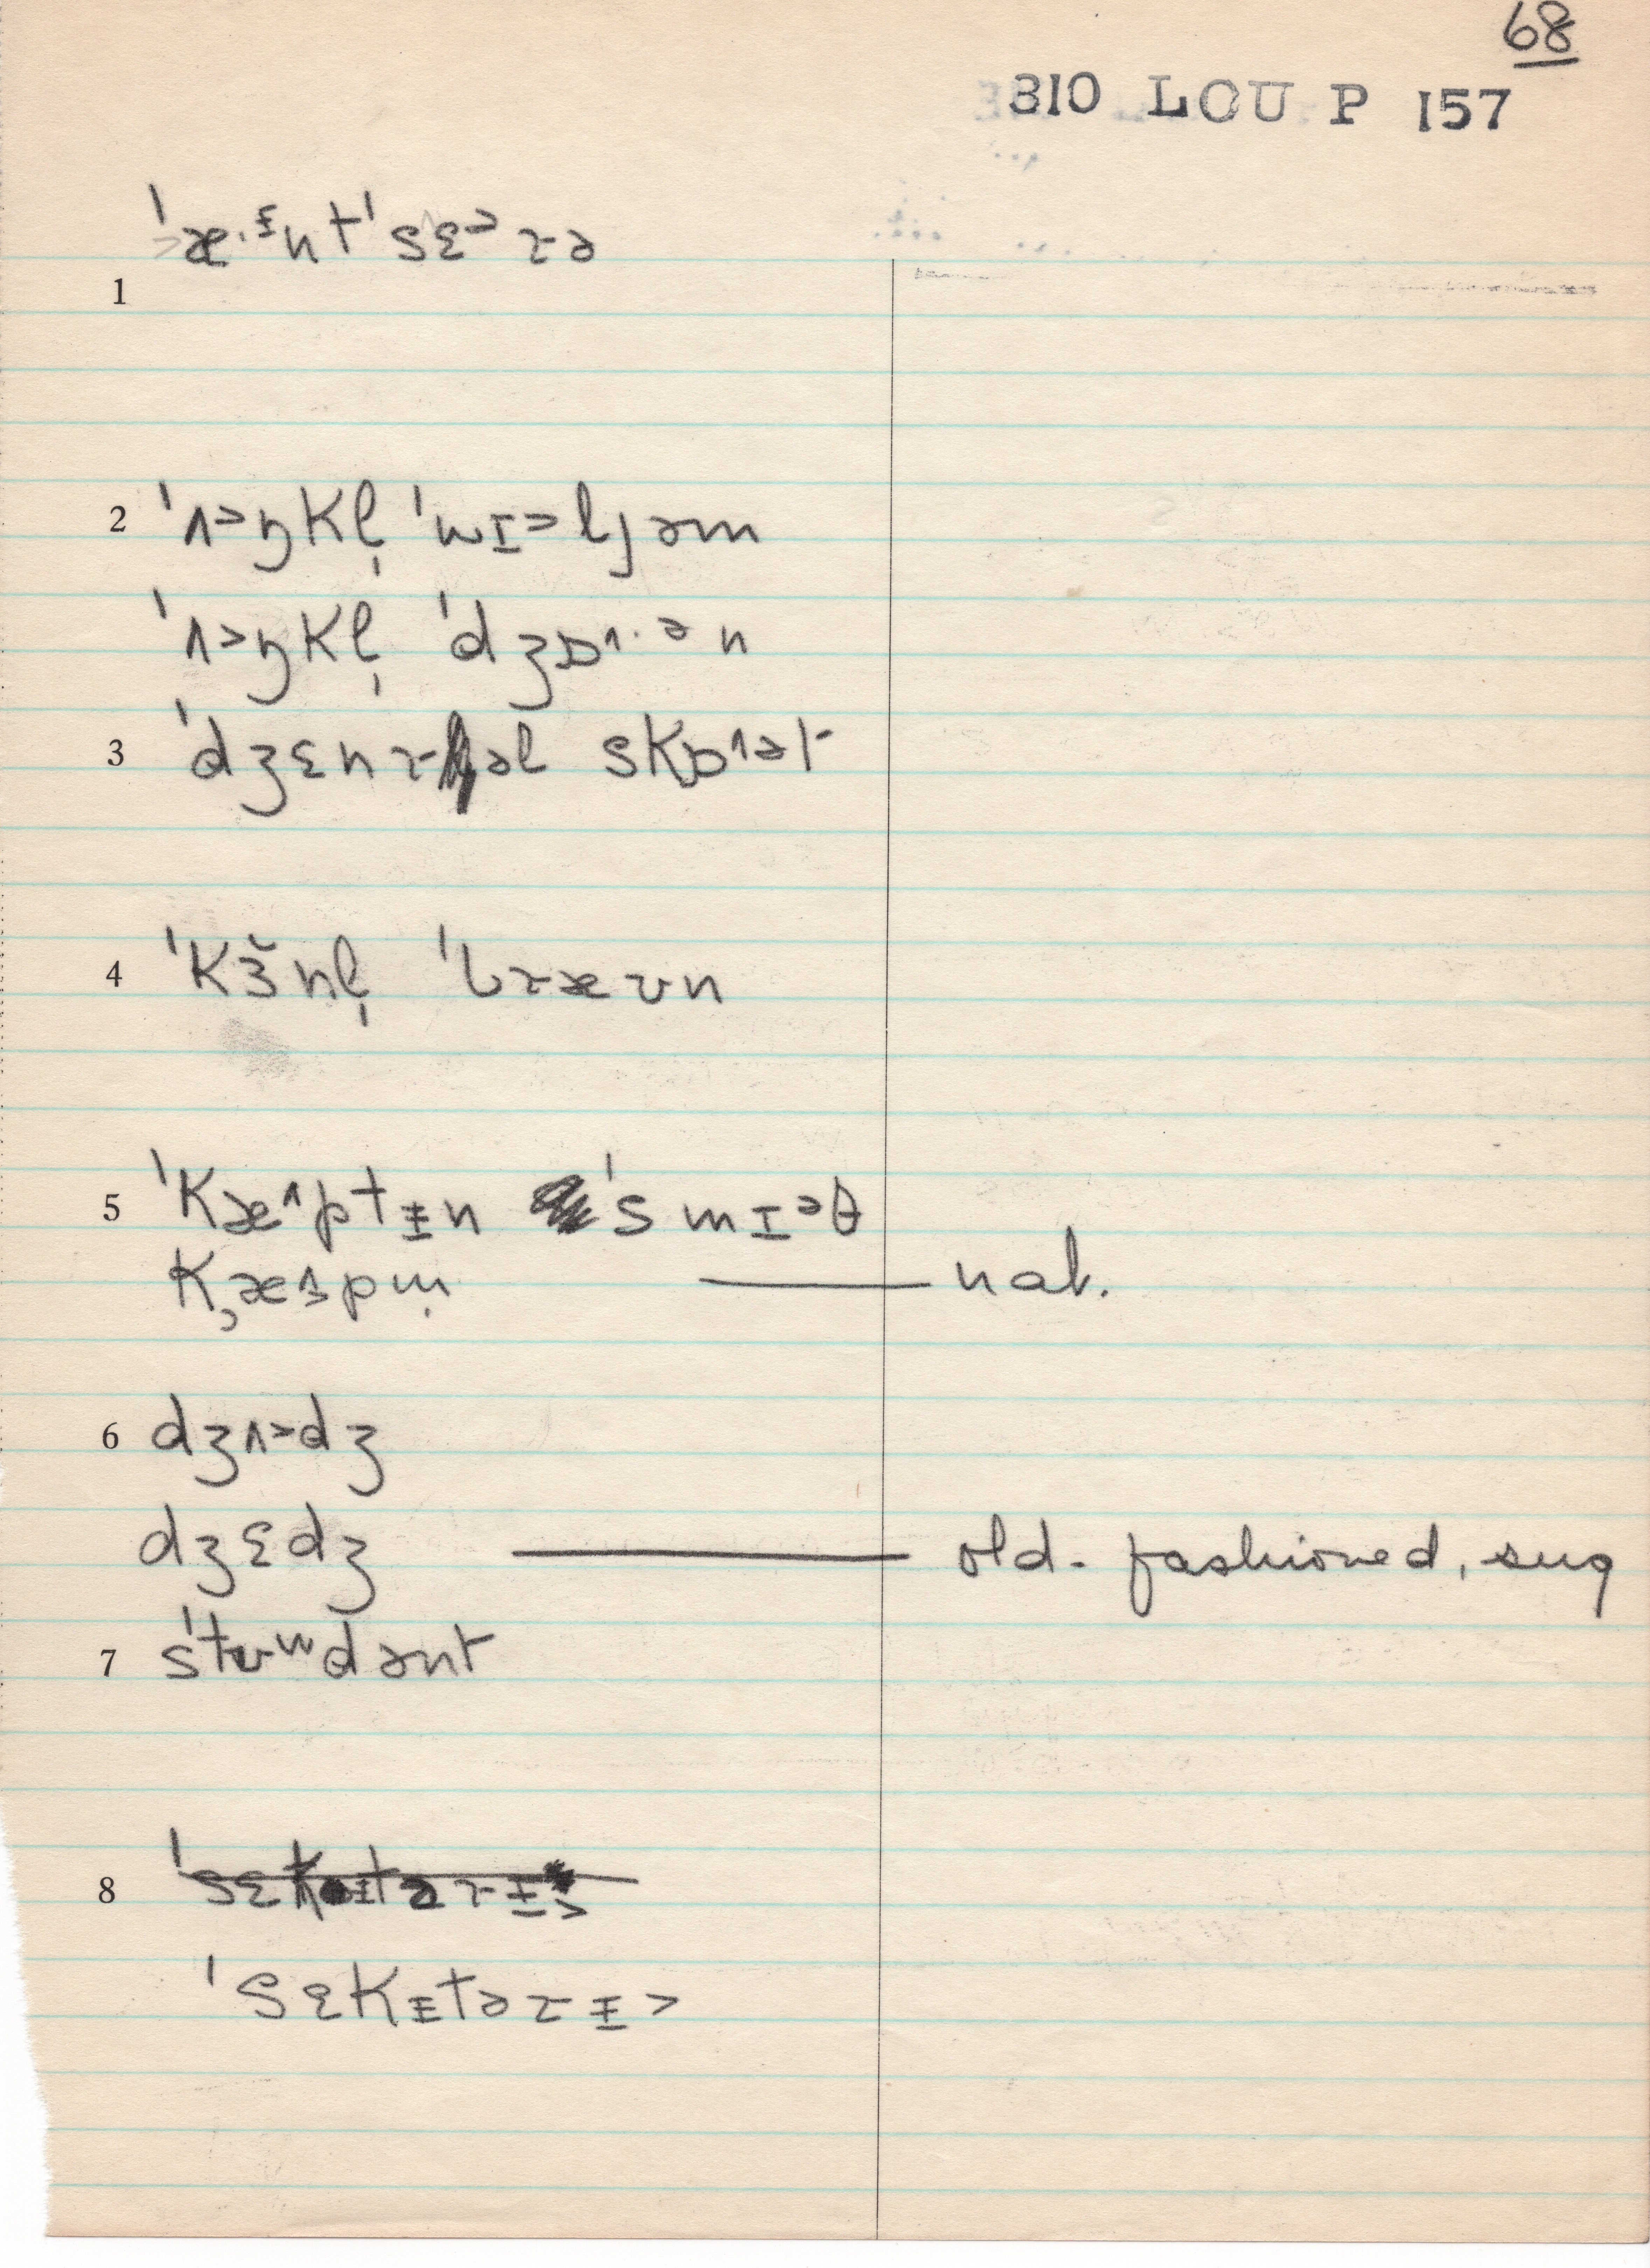 68
310 LOU P 157
1 ˈæ·ᵻntˈsɛ˃rə
2 ˈʌ˃ŋkl̩ ˈwɪ˃ljəm
ˈʌ˃ŋkl̩ ˈdʒɒ˄·ᵊn
3 ˈdʒɛnrəl skɒ˄ət
4 ˈkɜ̆nl̩ ˈbræʊn
5 ˈkæ˄ptᵻn ˈsmɪᵊθ
kæpm̩ —— nat.
6 dʒʌ˃dʒ
dʒɛdʒ —— old-fashioned, sug
7 sˈtʉʷdənt
8 ˈsɛkᵻtərᵻ˃
ˈsɛkᵻtərᵻ˃